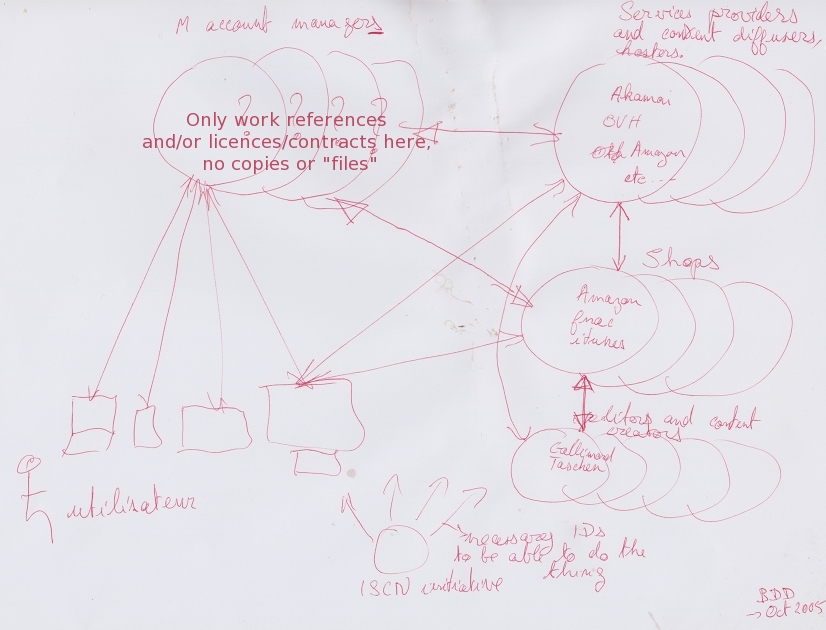 M account managers
Services providers
and content diffusers,
hosters.
? ? ? ?
Only work references
and/or licences/contracts here,
no copies or "files"
Akamai
OVH
Amazon
etc...
Shops
Amazon
fnac
itunes
editors and content
creators
Gallimard
Taschen
utilisateur
necessary IDs
to be able to do the
thing
ISCN initiative
BDD
→ Oct 2005